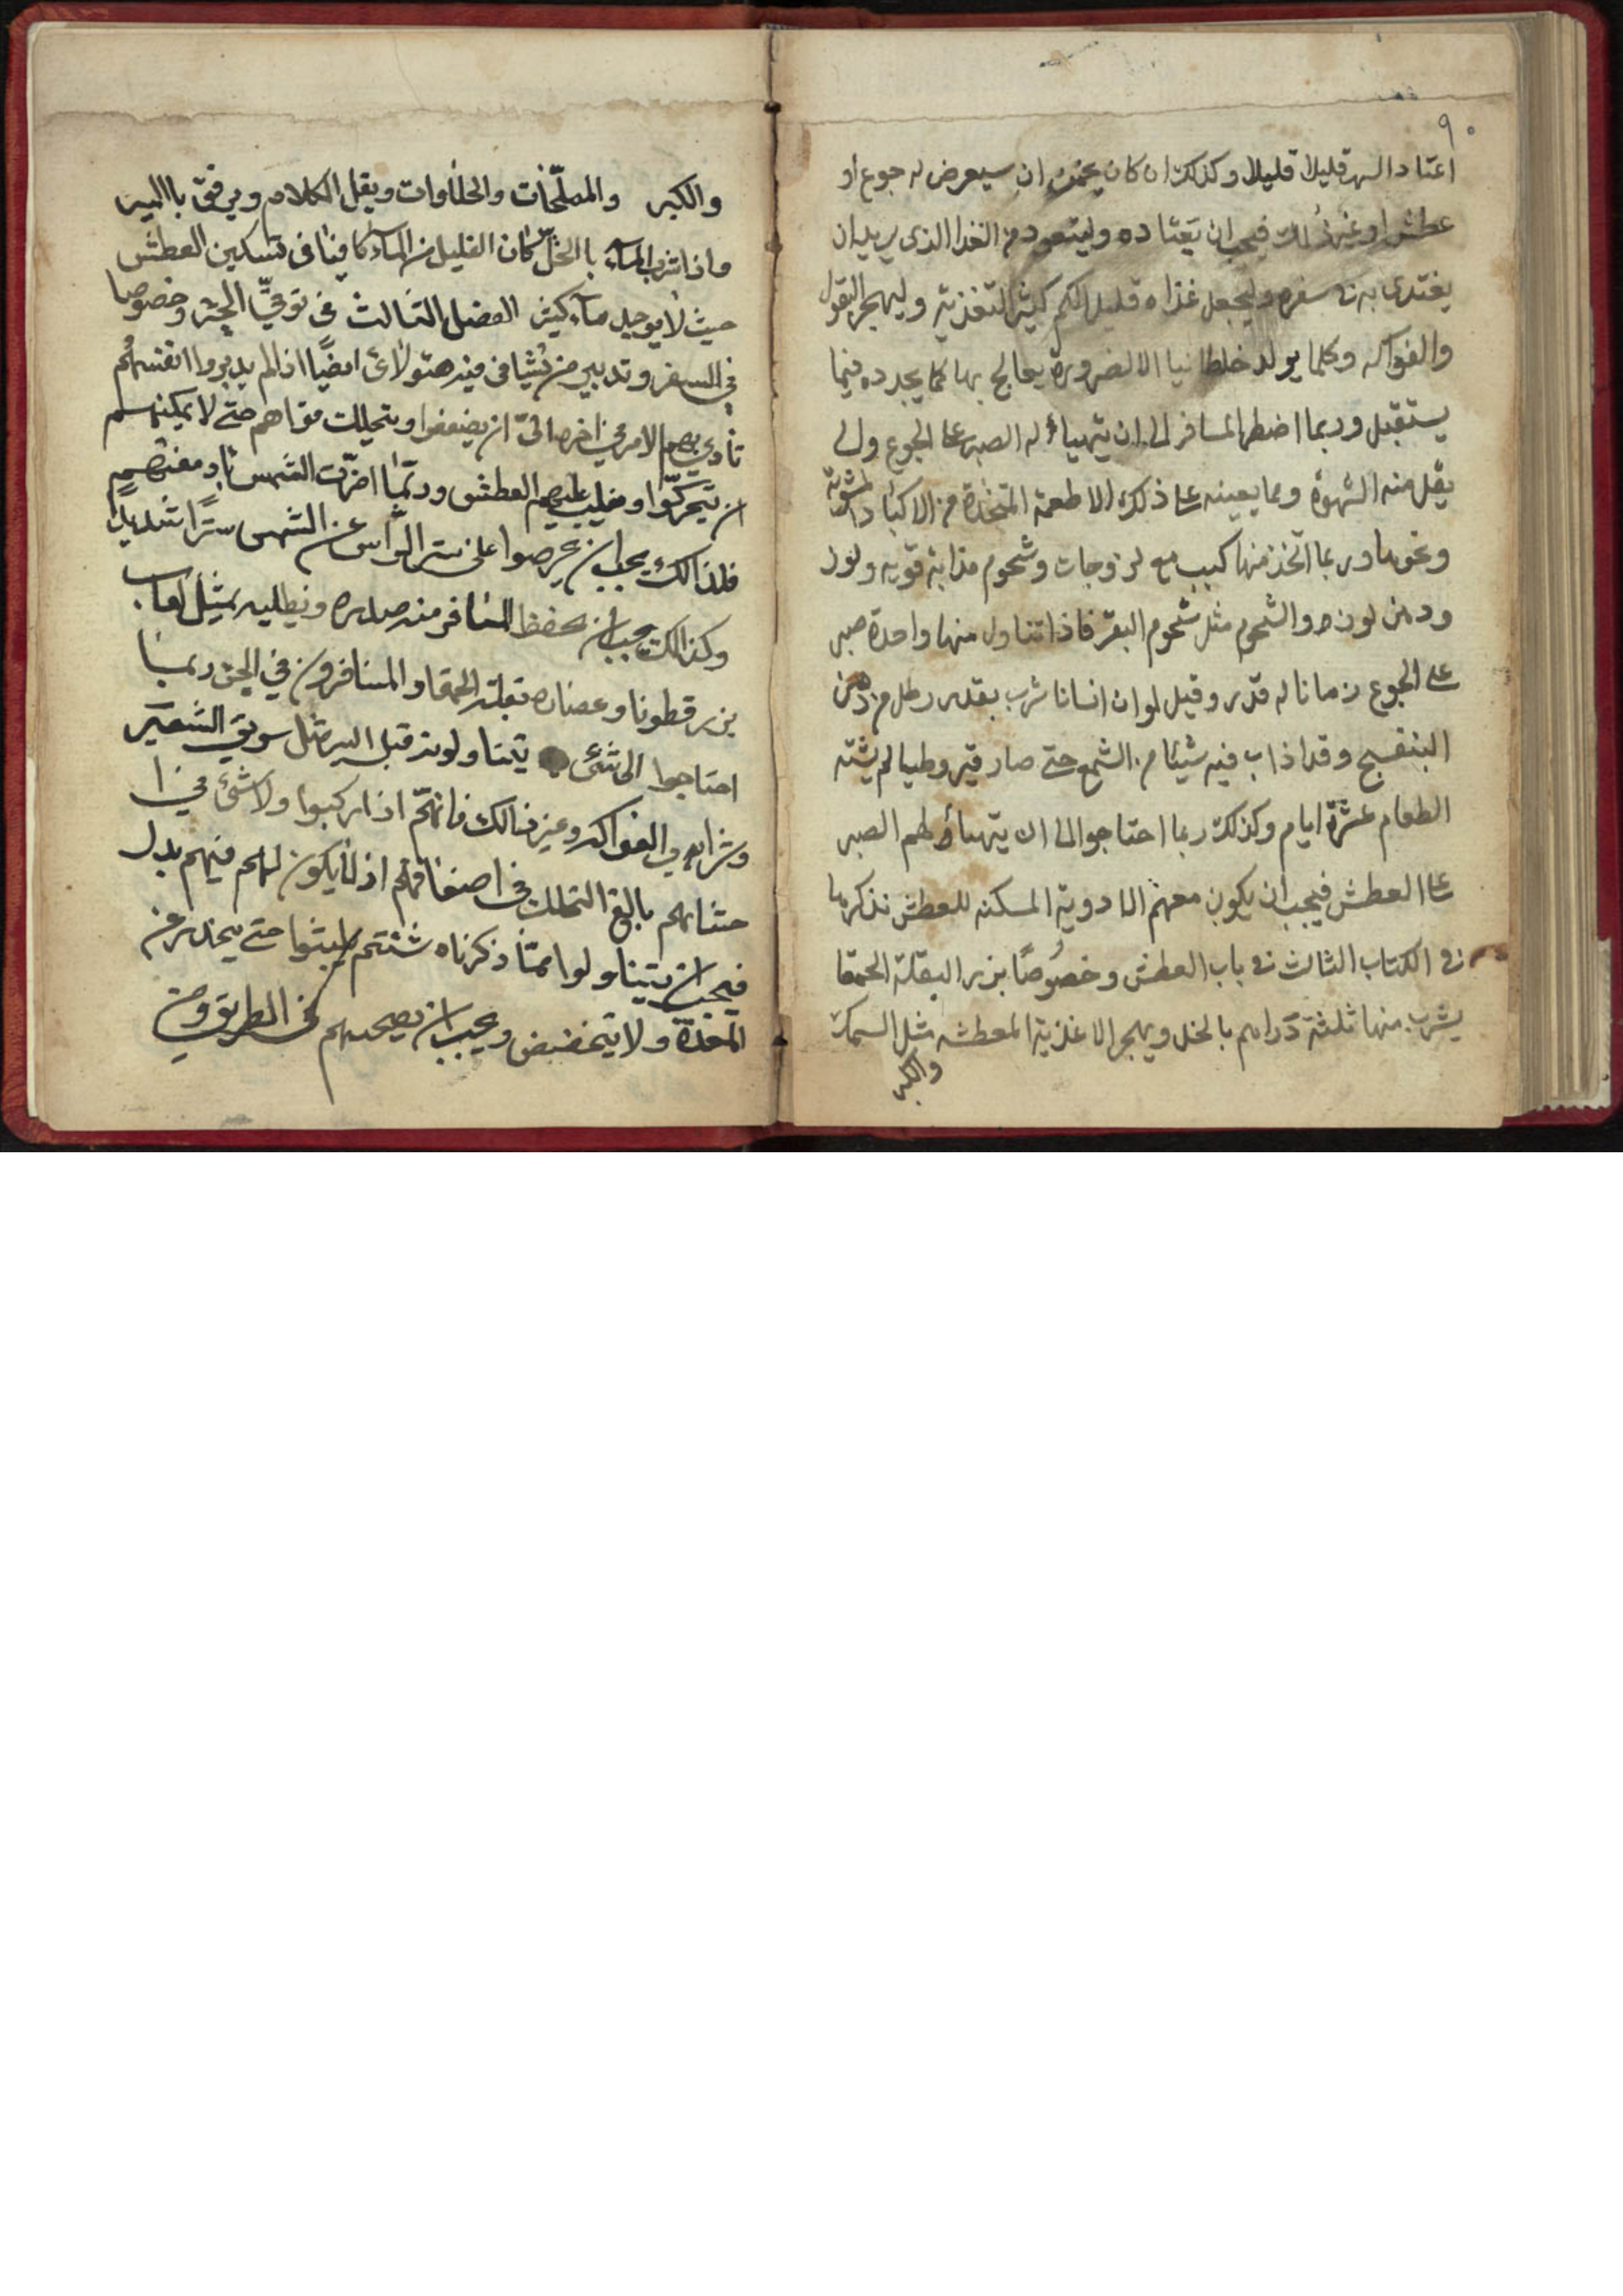 ٩٠
اعتاد السهر قليلا قليلا وكذلك ان كان يخمن ان سيعرض له جوع او
عطش او غير ذلك فيجب ان يعتاده وليتعود من الغذا الذى يريد ان
يغتدى به فى سفره وليجعل غذاه قليل الكم كثير التغذية وليهجر البقول
والفواكه وكلما يولد خلطا نيا الا لضرورة يعالج بها كما يجدده فيما
يستقبل وربما اضطر المسافر الى ان يتهياء له الصبر على الجوع ولى
يقل منه الشهوة ومما يعينه على ذلك الاطعمة المتخذة من الاكباد المشوية
ونحوها وربما اتخذ منها كبب مع لزوجات وشحوم مذابة قوية ولوز
ودهن لوز والشحوم مثل شحوم البقر فاذا تناول منها واحدة صبر
على الجوع زمانا له قدر وقيل لو ان انسانا شرب بقدر رطل من دهن
البنفسج وقد اذاب فيه شيئا من الشمع حتى صار قيروطيا لم يشته
الطعام عشرة ايام وكذلك ربما احتاجوا الى ان يتهياء لهم الصبر
على العطش فيجب ان يكون معهم الادوية المسكنه للعطش نذكرها
فى الكتاب الثالث فى باب العطش وخصوصًا بزر البقلة الحمقا
يشرب منها ثلثة دراهم بالخل ويهجر الاغذية المعطشه مثل السمك
والكبر
والكبر والمملحات والحلاوات ويقل الكلام ويرفق باالسير
واذا شرب الماء باالخل كان القليل من الماء كافيا فى تسكين العطش
حيث لا يوجد ماء كثير الفصل الثالث فى توقي الحر وخصوصا
فى السفر وتدبير من يسافر فيه هئولاى ايضًا اذا لم يدبروا انفسهم
تأدى بهم الامر فى اخره الى ان يضعفوا ويتحللت قواهم حتى لا يمكنهم
ان يتحركوا ويغلب عليهم العطش وربما اضرت الشمس بادمغتهم
فلذالك يجب ان يحرصوا على ستر الراس عن الشمس سترًا شديدًا
وكذالك يجب ان يحفظ المسافر منه صدره ويطليه بمثل لعاب
بزر قطونا وعصاره بقلة الحمقا والمسافرون فى الحر ربما
احتاجوا الى شئ يتناولونه قبل السير مثل سويق الشعير
وشراب الفواكه وغير ذالك فانهم اذا ركبوا ولا شئ فى ا
حشائهم بالغ التحلل فى اضعافهم اذ لا يكون لهم فيهم بدل
فيجب ان يتناولوا مما ذكرناه شئتم يلبثوا حتى ينحدر عن
المعدة ولا يتخضخض ويجب ان يصحبهم فى الطريق